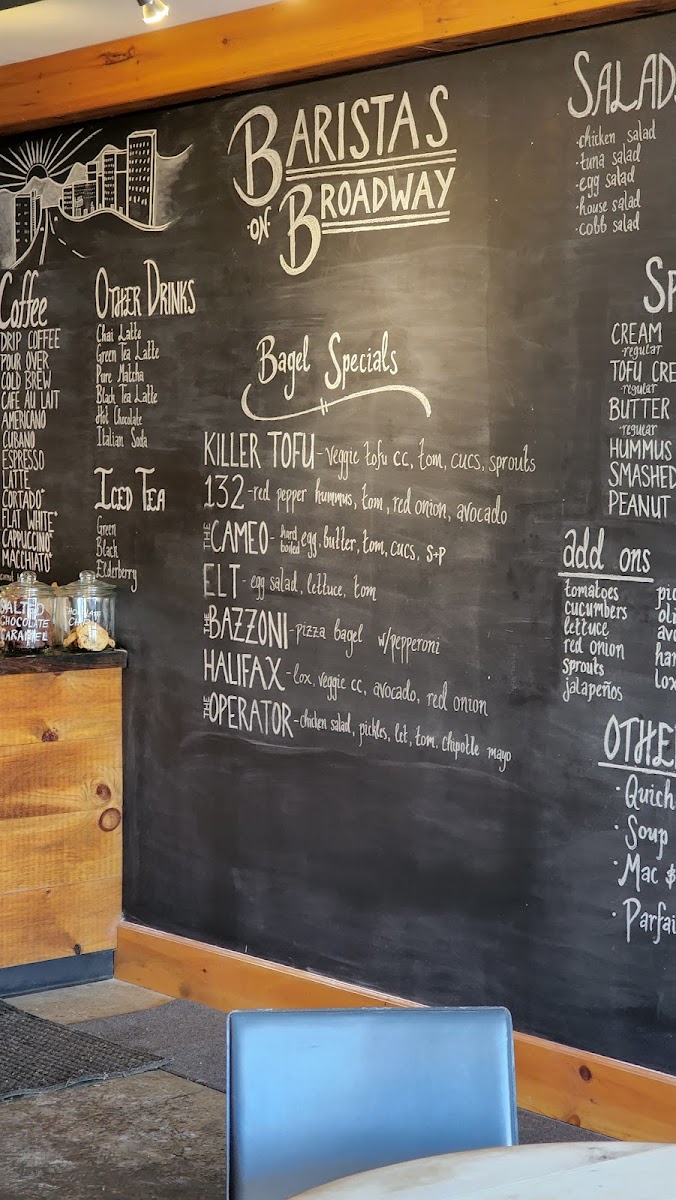 BARISTAS
ON BROADWAY
Coffee
DRIP COFFEE
POUR OVER
COLD BREW
CAFE AU LAIT
AMERICANO
CUBANO
ESPRESSO
LATTE
CORTADO*
FLAT WHITE*
CAPPUCCINO*
MACCHIATO*
OTHER DRINKS
Chai Latte
Green Tea Latte
Pure Matcha
Black Tea Latte
Hot Chocolate
Italian Soda
ICED TEA
Green
Black
Elderberry
SALTED
CHOCOLATE
CARAMEL
Bagel Specials
KILLER TOFU - veggie tofu cc, tom, cucs, sprouts
132 - red pepper hummus, tom, red onion, avocado
THE CAMEO - hard boiled egg, butter, tom, cucs, S+P
ELT - egg salad, lettuce, tom
THE BAZZONI - pizza bagel w/pepperoni
HALIFAX - lox, veggie cc, avocado, red onion
THE OPERATOR - chicken salad, pickles, let, tom, chipotle mayo
SALADS
·chicken salad
·tuna salad
·egg salad
·house salad
·cobb salad
SP
CREAM
·regular
TOFU CRE
·regular
BUTTER
·regular
HUMMUS
SMASHED
PEANUT
add ons
tomatoes
cucumbers
lettuce
red onion
sprouts
jalapeños
pic
oli
avo
har
lox
OTHE
·Quich
·Soup
·Mac $
·Parfai